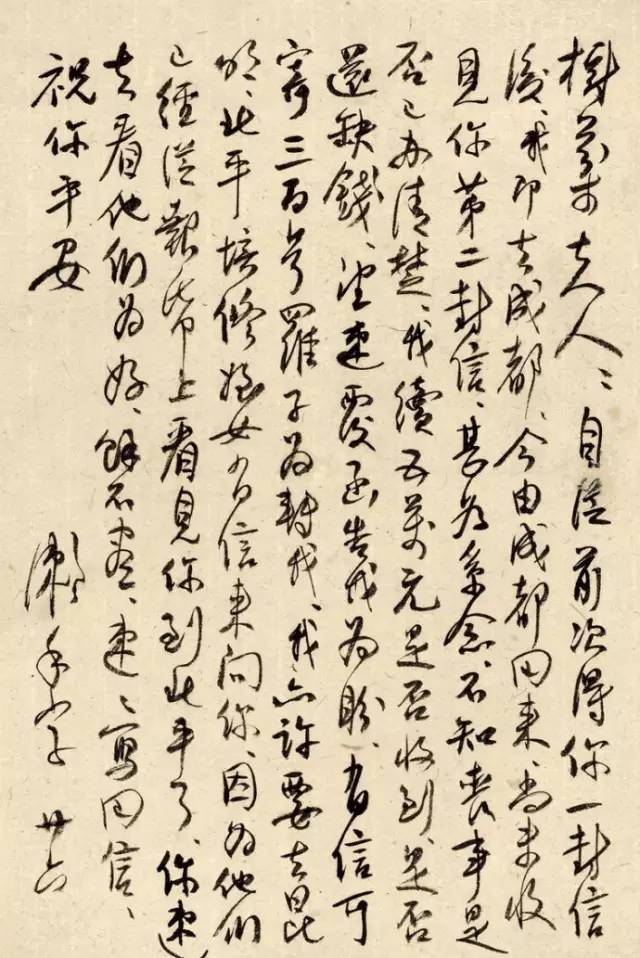 樹夫人：自從前次得你一封信
後、我即去成都、今由成都回來、尚未收
見你第二封信、甚為系念、不知喪事是
否已办清楚、我續五萬元是否收到、是否
還缺錢、望速覆函告我為盼、有信可
寄三百号羅子為轉我、我亦許要去昆
明、北平培修姪女有信來問你、因為他們
已經從報帋上看見你到北平了、你速
去看他們為好、餘不盡、速々寫回信、
祝你平安
廿六